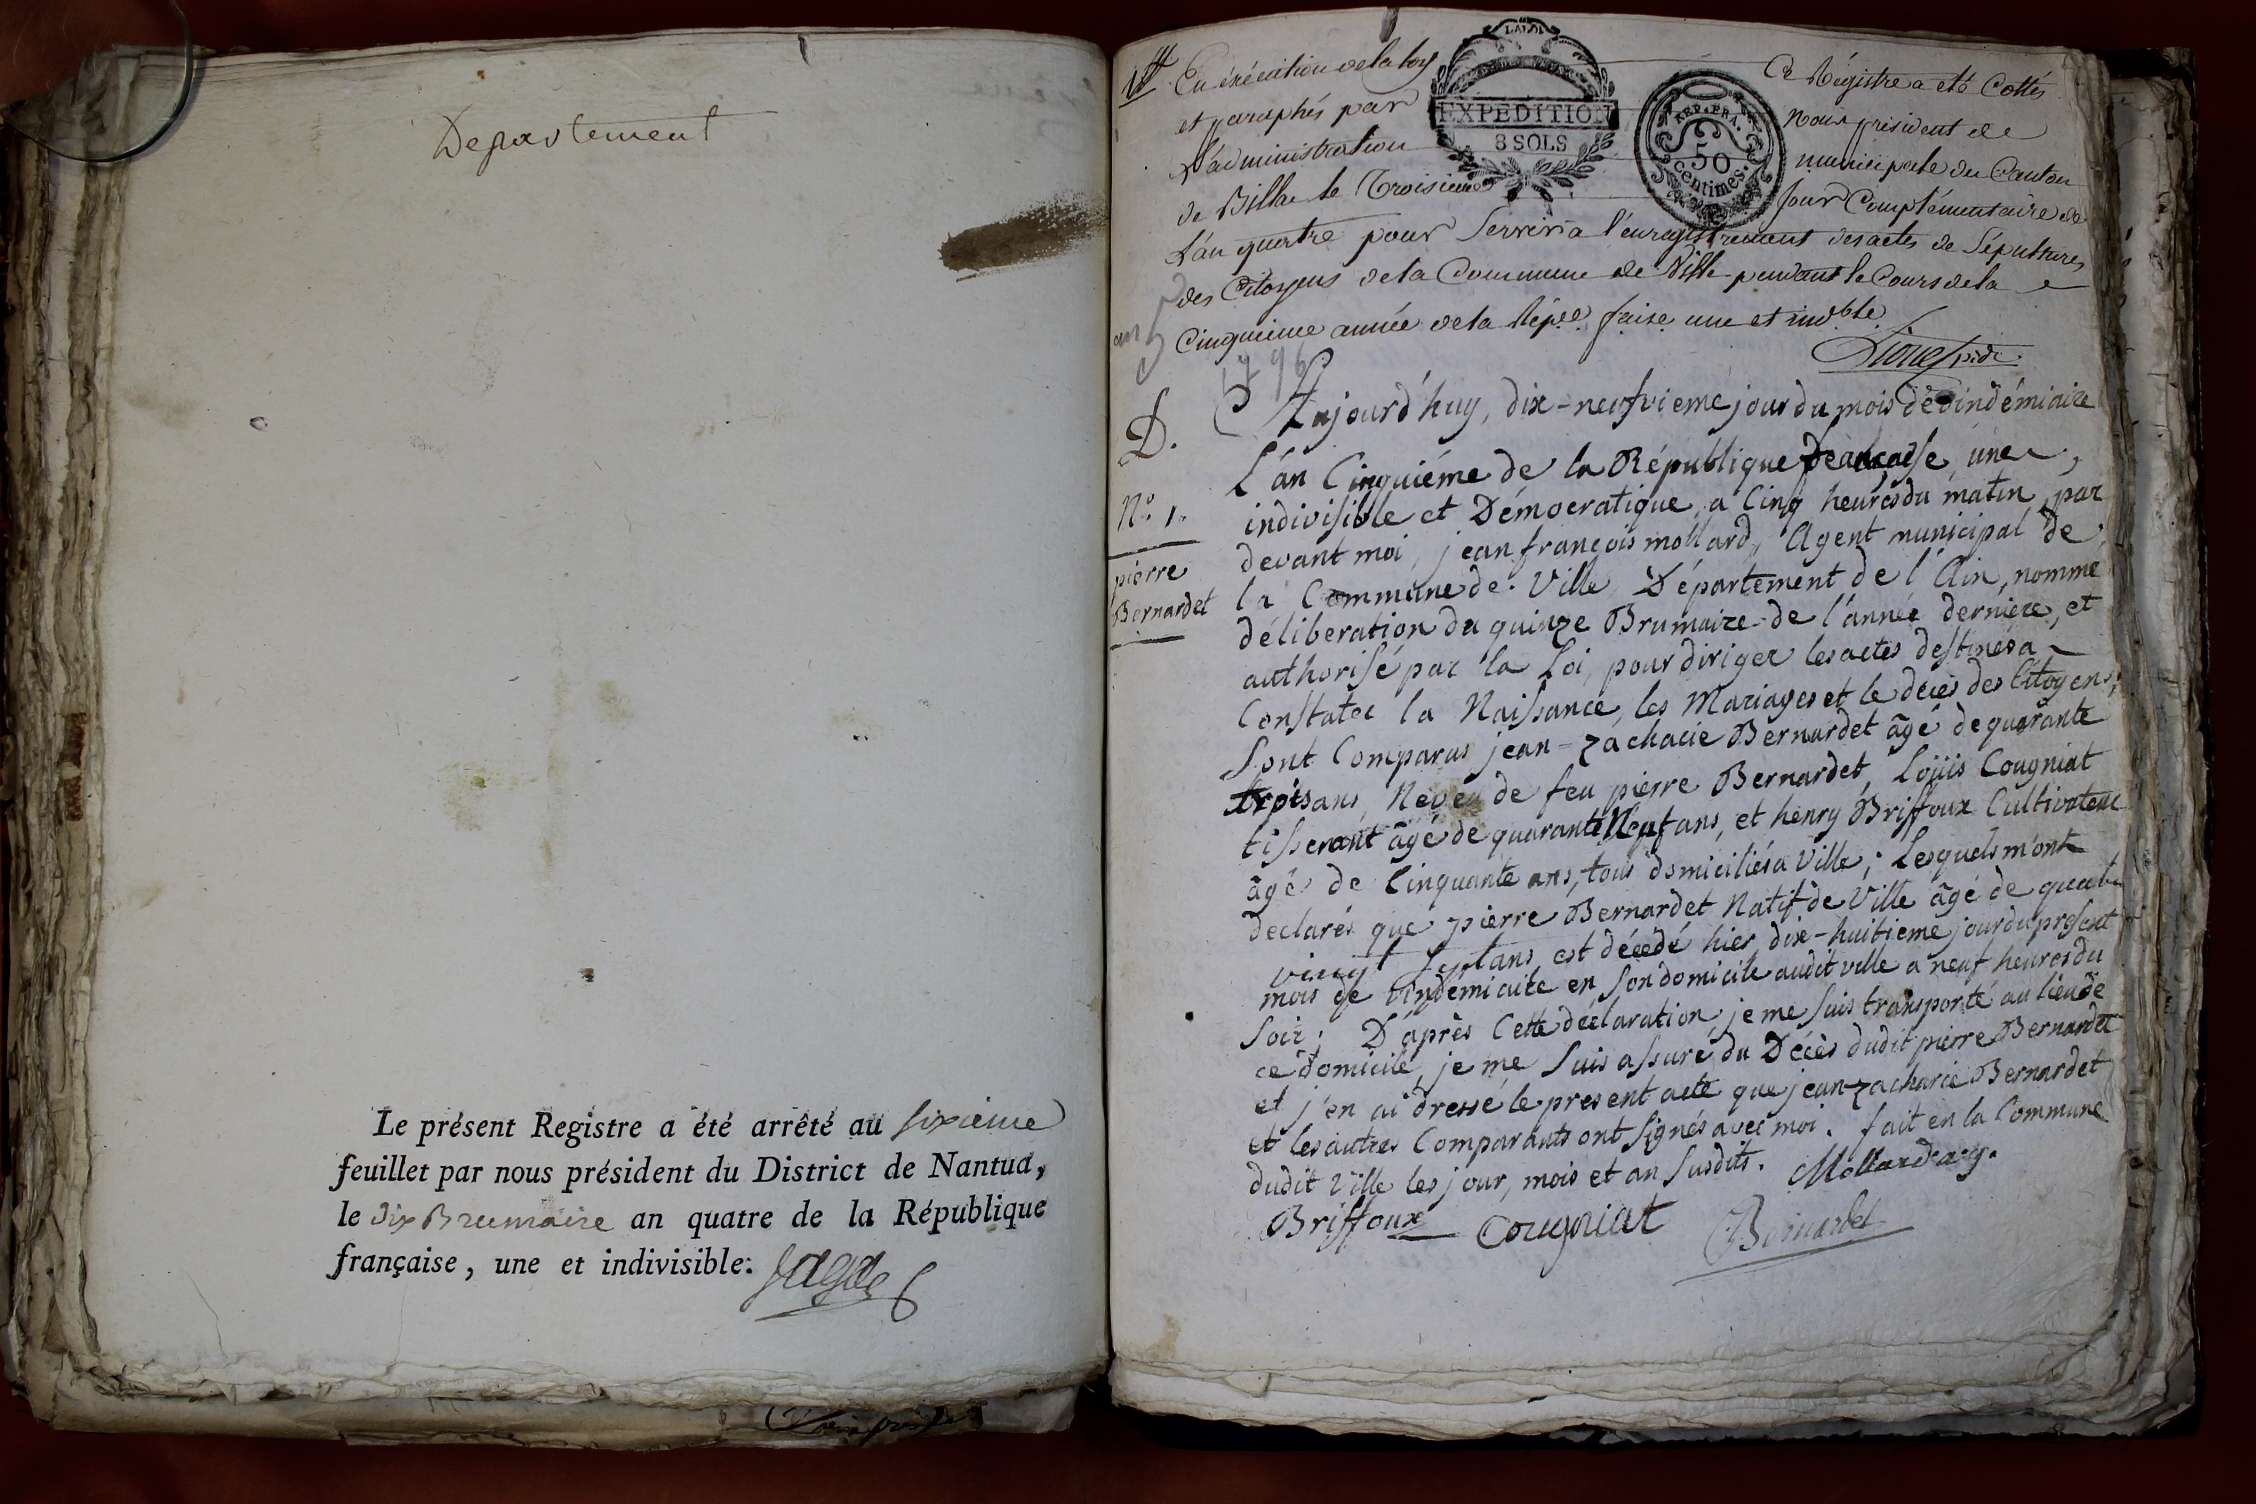 Departement
Le présent Registre a été arrêté au sixieme
feuillet par nous président du District de Nantua,
le dix Brumaire an quatre de la République
française, une et indivisible.
En éxécution de la loy Ce Régistre a eté Cottés
et paraphés par Nous président de
L'administration municipale du Canton
de Billia le Troisieme Jour Complémentaire de
L'an quatre pour Servir a l'enregistrement des actes de Sépultures
des Citoyens de la Commune de Ville pendant le Cours de la
Cinquieme année de la Répe. faise une et indble
LA LOI
EXPEDITION
8 SOLS
REP. FRA.
50
Centimes.
an 5
1796
D.
No. 1.
pierre
Bernardet
Aujourd'huy, dix-neufvieme jour du mois de vindémiaire
L'an Cinquiéme de la République française, une,
indivisible et Démocratique, a Cinq heures du matin, par
devant moi, jean françois mollard, Agent municipal de
la Commune de Ville, Département de l'Ain, nommé
déliberation du quinze Brumaire de l'année derniere, et
authorisé par la Loi, pour diriger les actes destinés a
Constater la Naissance, les Mariages et le décès des Citoyens;
Sont Comparus jean-zacharie Bernardet âgé de quarante
trois ans, Neveu de feu pierre Bernardet, Loüis Cougniat
tisserant âgé de quarante Neuf ans, et henry Briffoux Cultivateur
âgé de Cinquante ans, tous domiciliés a Ville; Lesquels m'ont
declarés que pierre Bernardet Natif de Ville âgé de quatre
vingt Sept ans est décedé hier dix-huitieme jour du present
mois de vindémiaire en Son domicile audit ville a neuf heures du
Soir; D'après Cette déclaration, je me Suis transporté au lieu de
ce domicile, je me Suis assuré du Décès dudit pierre Bernardet
et j'en ai dressé le present acte que jean-zacharie Bernardet
et les autres Comparants ont Signés avec moi. fait en la Commune
dudit Ville les jour, mois et an Susdits. Mollard ag.
Briffoux Cougniat Bernardet